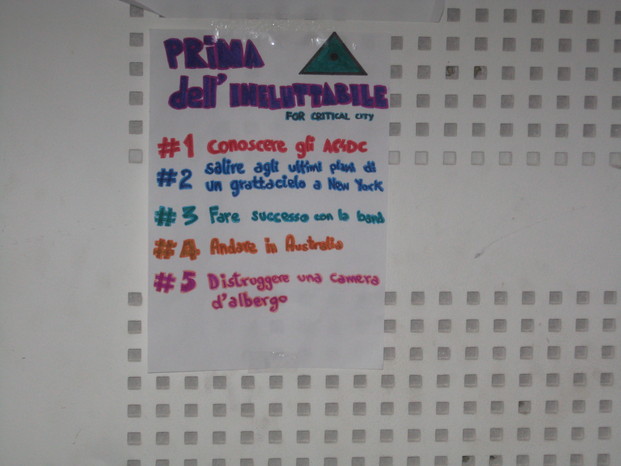 PRiMA
dell' INELUTTABILE
FOR CRITICAL CITY
#1 conoscere gli AC⚡DC
#2 salire agli ultimi piani di
un grattacielo a New York
#3 Fare successo con la band
#4 Andare in Australia
#5 Distruggere una camera
d'albergo